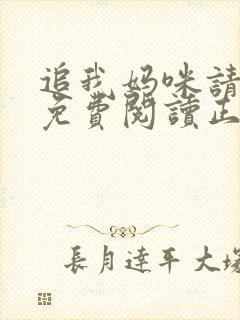 追我妈咪請
免費閱讀正
長月達平大塚